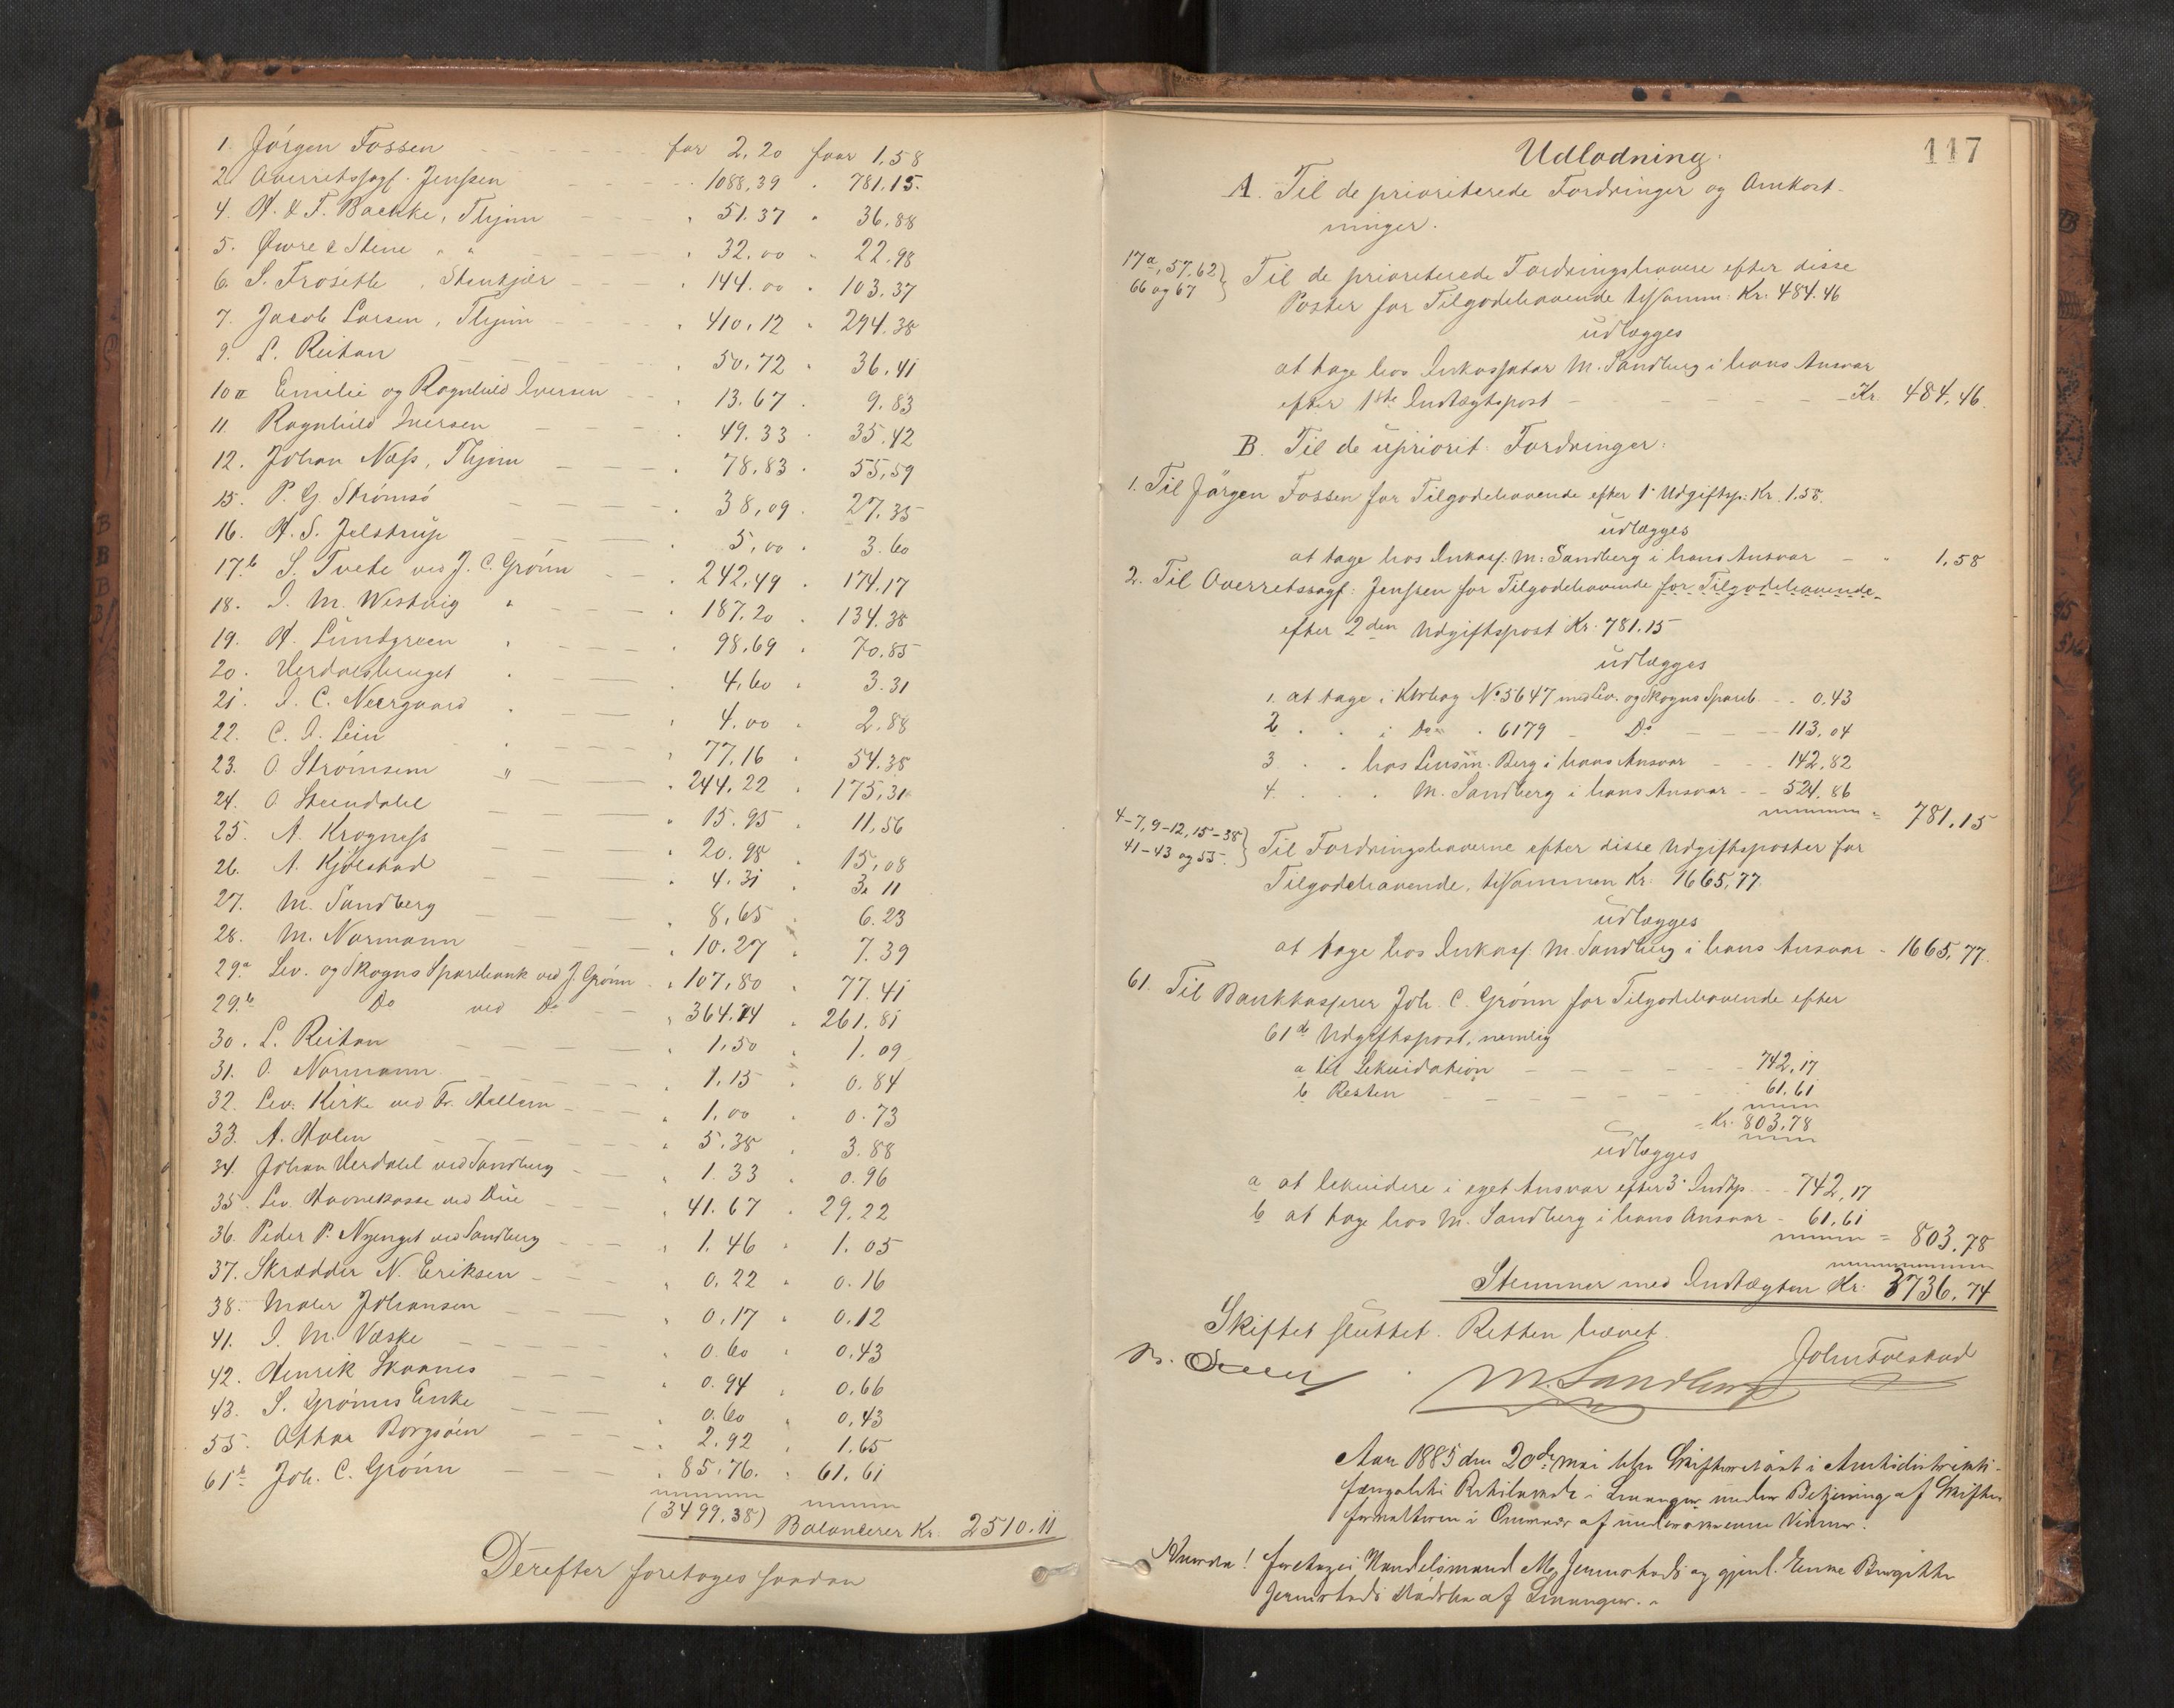 1. Jörgen Fossen - - - - - for 2,20 faar 1,58
2. Overretssagf. Jenssen - - - - 1088,39 . 781,15.
4. H. & F. Bachke, Thjem - - - " 51.37 " 36.88
5. Øwre & Stene " " - - - " 32.00 " 22.98
6. S. Froseth, Stenkjær - - - " 144.00 " 103.37
7. Jacob Larsen, Thjem - - - " 410,12 " 294.38
9. L. Reitan - - - " 50,72 " 36.41
10a Emilie og Ragnhild Iversen - - " 13.67 . 9.83
11. Ragnhild Iversen - - - " 49.33 . 35.42
12. Johan Næss, Thjem - - - " 78,83 . 55,59
15. P. G. Strömsö - - - " 38,09 . 27.35
16. H. S. Jelstrup - - - " 5,00 . 3.60
17.b S. Tvete ved J. C. Grönn - - " 242,49 . 174,17
18. I. M. Westvig " - - - " 187.20 . 134.38
19. H. Lundgreen " - - - " 98,69 . 70.85
20. Verdalsbruget " - - - " 4,60 " 3.31
21. I. C. Neergaard " - - - " 4.00 " 2.88
22. C. I. Lein " - - - " 77,16 " 54.38
23. O. Strömsem " - - - " 244,22 " 175,31
24. O. Steendahl - - - " 15.95 " 11,56
25. A. Krogness - - - " 20.98 " 15,08
26. A. Kjölstad - - - " 4.31 " 3.11
27. M. Sandberg - - - " 8,65 " 6.23
28. M. Normann - - - " 10.27 " 7.39
29.a Lev. og Skogns Sparebank ved J. Grönn . " 107,80 " 77.41
29.b Do ved Do - - " 364.74 " 261.81
30. L. Reitan - - - " 1,50 " 1.09
31. O. Normann - - - " 1,15 " 0.84
32. Lev. Kirke ved Fr. Mellem - - " 1,00 " 0.73
33. A. Holen - - - " 5.38 " 3.88
34. Johan Verdahl ved Sandberg - " 1.33 " 0.96
35. Lev. Havnekasse ved Due - - " 41.67 " 29,22
36. Peder P. Nyenget ved Sandberg - - " 1.46 " 1.05
37. Skrædder N. Eriksen - - - " 0.22 " 0.16
38. Maler Johansen - - - " 0,17 " 0.12
41. I. M. Væske - - - " 0.60 " 0,43
42. Henrik Skaanes - - - " 0.94 " 0.66
43. S. Grönns Enke - - - " 0.60 " 0,43
55. Ottar Borgsöen - - - " 2.92 " 1.65
61b Joh. C. Grönn - - - " 85,76. " 61.61
(3499.38) Balancerer Kr. 2510.11
Derefter foretoges saadan
117
Udlodning.
A. Til de prioriterede Fordringer og Omkost-
ninger.
17a, 57, 62
66 og 67 } Til de prioriterede Fordringshavere efter disse
Poster for Tilgodehavende tilsamm: Kr. 484.46
udlægges
at tage hos Inkassator M. Sandberg i hans Ansvar
efter 1ste Indtægtspost - - - - - - Kr. 484,46.
B. Til de upriorit. Fordringer:
1. Til Jörgen Fossen for Tilgodehavende efter 1' Udgiftsp: Kr. 1.58.
udlægges
at tage hos Inkass: M. Sandberg i hans Ansvar - " 1,58
2. Til Overretssagf: Jenssen for Tilgodehavende for Tilgodehavende
efter 2den Udgiftspost Kr. 781,15
udlægges
1. at tage i Ktrbog No 5647 med Lev. og Skogns Spareb. - - 0.43
2 . . i Do . 6179 - Do - - - 113.04
3 . . hos Lensm. Berg i hans Ansvar - - - 142.82
4. . . . M. Sandberg i hans Ansvar - - 524.86
= 781,15
4-7, 9-12, 15-38
41-43 og 55. } Til Fordringshaverne efter disse Udgiftsposter for
Tilgodehavende, tilsammen Kr. 1665,77.
udlægges
at tage hos Inkass. M. Sandberg i hans Ansvar - 1665,77.
61. Til Bankkasserer Joh. C. Grönn for Tilgodehavende efter
61de Udgiftspost, nemlig
a til Lekvidation - - - - - 742,17
b Resten - - - - - - 61.61
= Kr. 803,78
udlægges
a at lekvidere i eget Ansvar efter 3' Indtp. - - 742,17
b at tage hos M. Sandberg i hans Ansvar - 61,61
= 803,78
Stemmer med Indtægten Kr. 3736,74
Skiftet sluttet. Retten hævet.
M. Sandberg John Tolstad
Aar 1885 den 20de Mai blev Skifteret sat i Amtsdistrikts-
fængslets Retslokale i Levanger under Betjening af Skifte
forvalteren i Overvær af undertegnede Vidner.
Hvorda! foretoges Handelsmand M. Jermstads og gjenl. Enke Birgitte
Jermstads Dødsbo af Levanger.